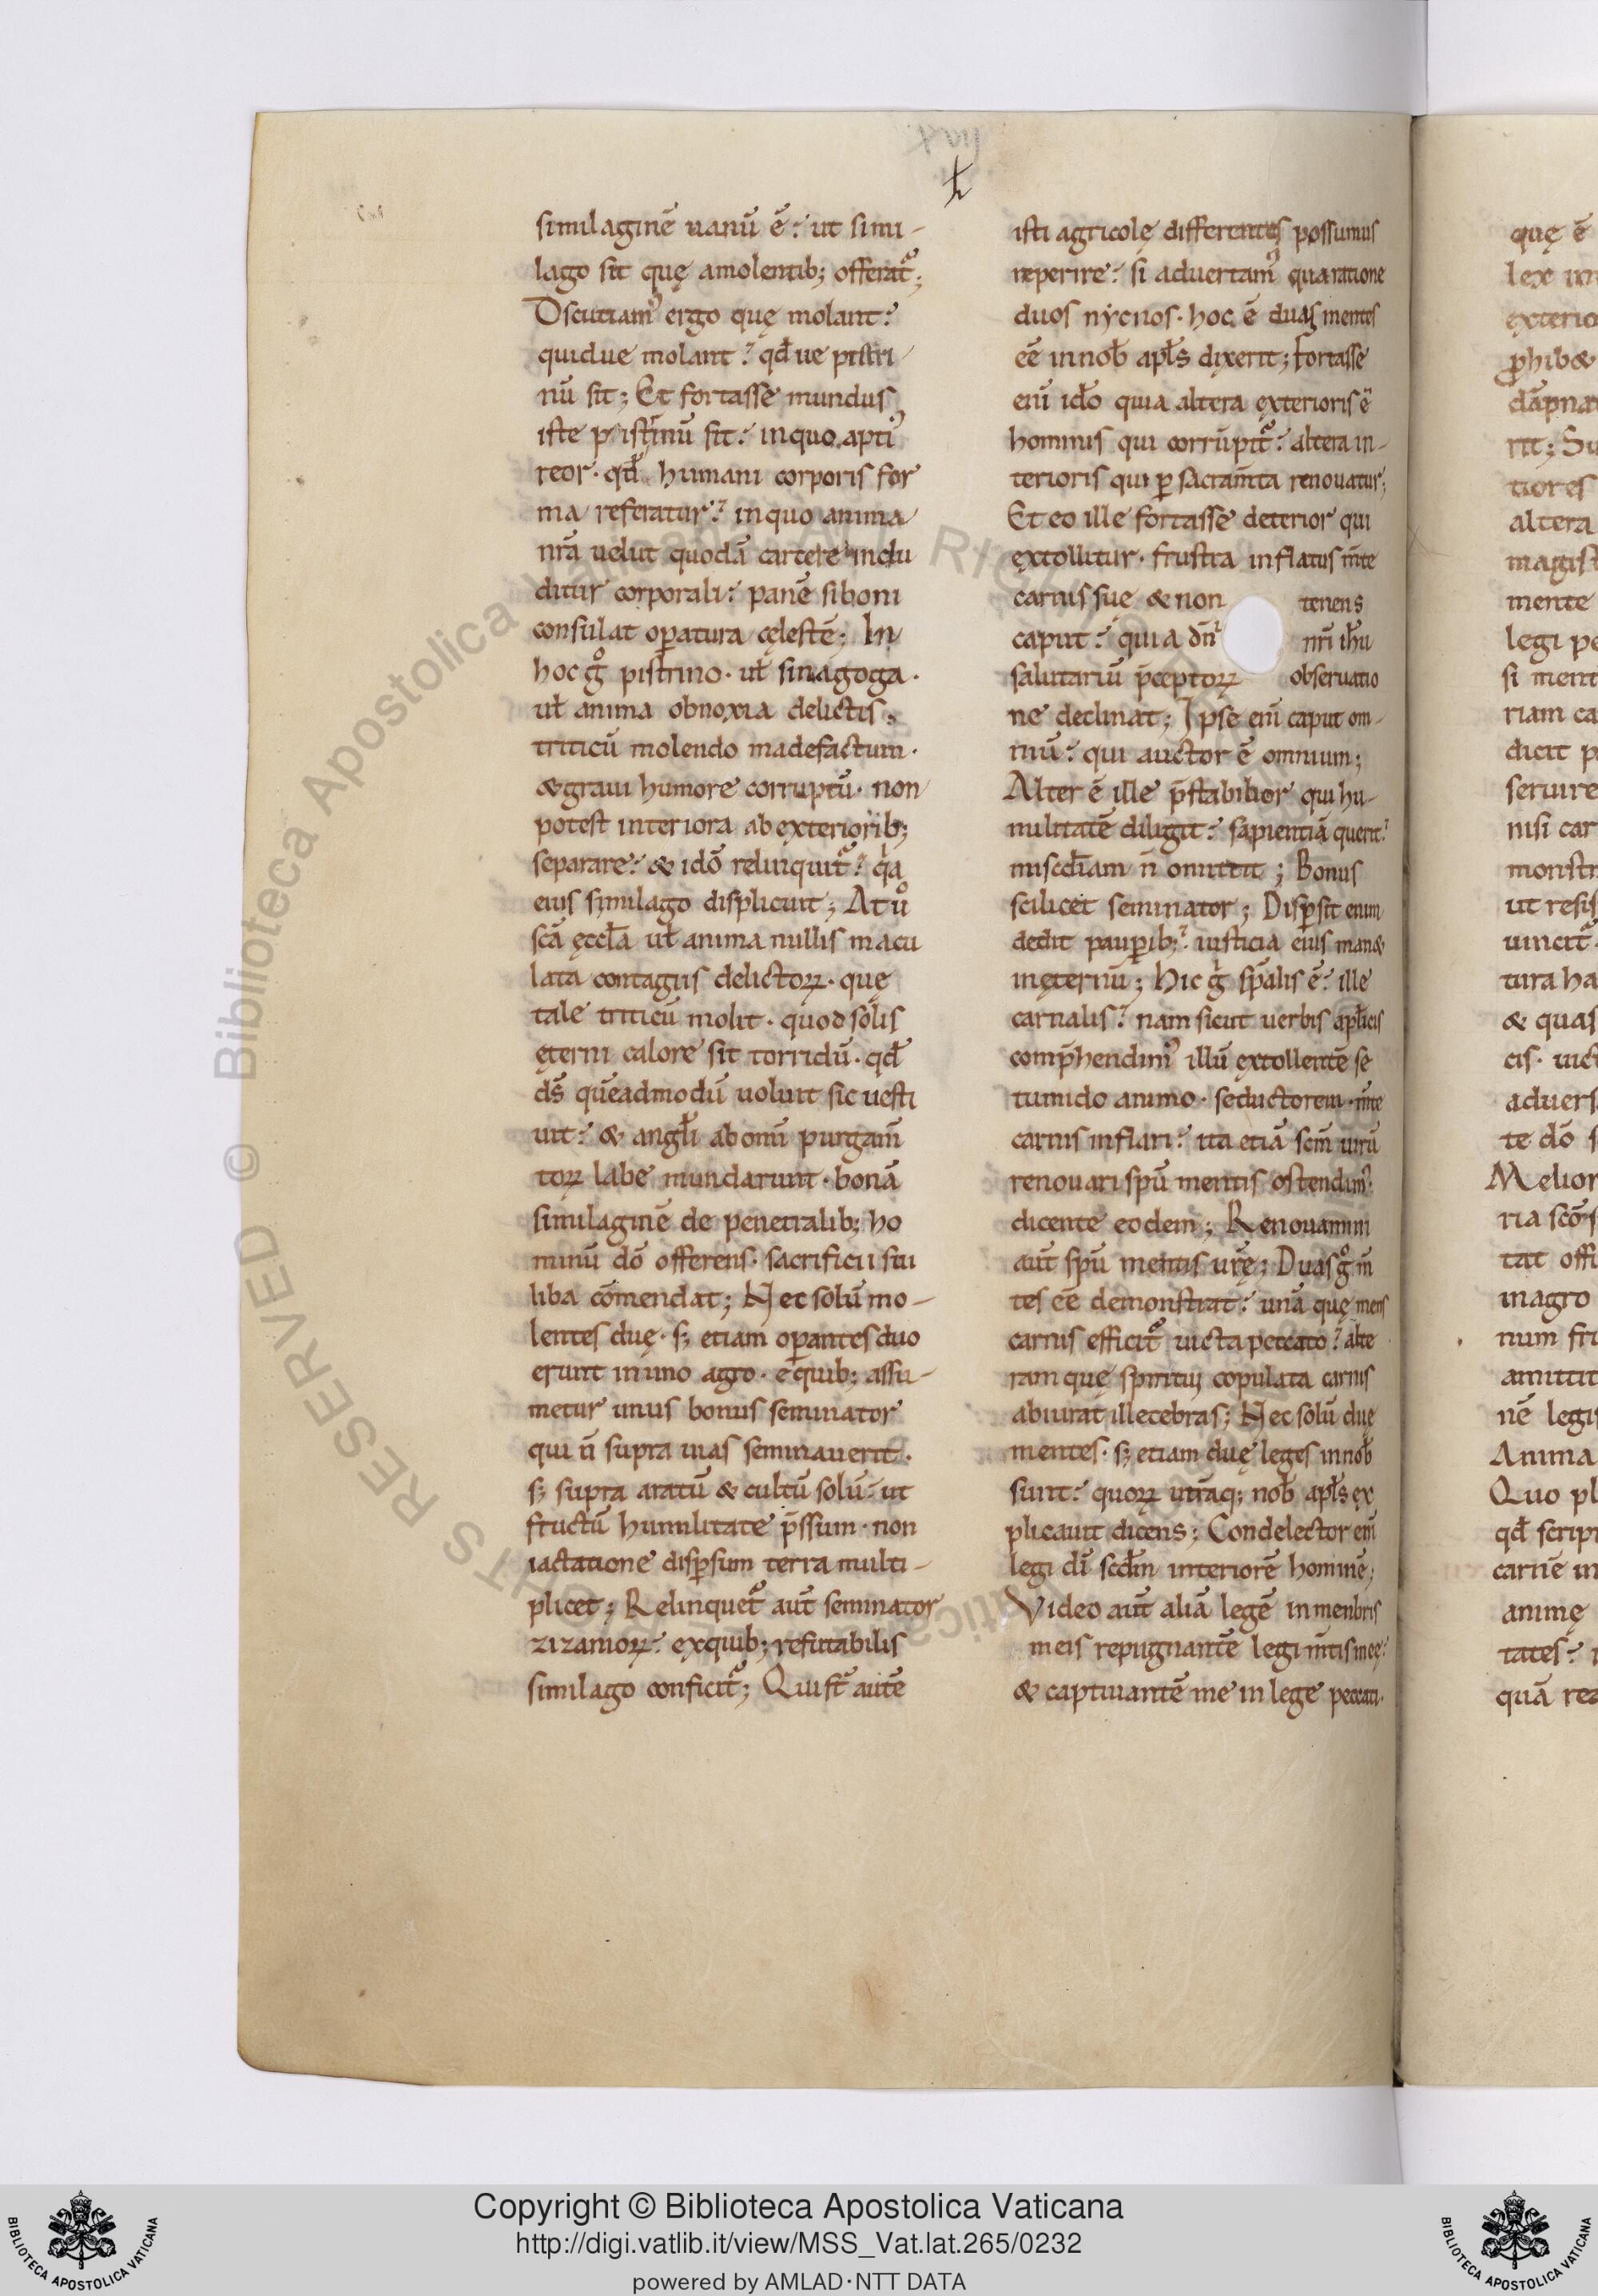 similaginē uanū ē? ut simi-
lago sit quę amolentib; offerat᷑;
Dscutiam᷒ ergo quę molant?
quidue molant? qđ ue pistri
nū sit; Et fortasse mundus
iste pistrinū sit? inquo apti᷒
reor· qđ humani corporis for
ma referatur? inquo anima
nr̄a uelut quodā carcere inclu
ditur corporali? panē siboni
consulat oꝑatura cęlestē; In
hoc gͦ pistrino· uł sinagoga·
uł anima obnoxia delictis·
triticū molendo madefactum·
&graui humore corruptū· non
potest interiora abexteriorib;
separare? & idō relinquit᷑? qͣa
eius similago displicuit; At uͦ
scā ęccła uł anima nullis macu
lata contagiis delictoꝝ· quę
tale triticū molit· quod solis
ęterni calore sit torridū· qđ
ds̄ quēadmodū uoluit sic uesti
uit? & angłi abomī purgam̄
toꝝ labe mundarunt· bonā
similaginē de penetralib; ho
minū dō offerens· sacrificii sui
liba cōmendat; Nec solū mo-
lentes duę· s; etiam oꝑantes duo
erunt inuno agro· equib; assu-
metur unus bonus seminator
qui n̄ supra uias seminauerit·
s; supra aratū & cultū solū? ut
fructū humilitate p̄ssum· non
iactatione disꝑsum terra multi-
plicet; Relinquet᷑ aut̄ seminator
zizanioꝝ? exquib; refutabilis
similago conficit᷑; Quist᷑ autē
isti agricolę differentes possumus
reperire? si aduertam᷒ quaratione
duos nycnos· hoc ē duas mentes
eē innoƀ apłs dixerit; Fortasse
enī idō quia altera exterioris ē
hominis qui corrūpit᷑? altera in-
terioris qui ꝑ sacram̄ta renouatur;
Et eo ille fortasse deterior qui
extollitur· frustra inflatus m̄te
carnis suę & non tenens
caput? qui a dn̄i nr̄i ihū
salutariū p̄ceptoꝝ obseruatio
ne declinat; Ipse enī caput om-
niū? qui auctor ē omnium;
Alter ē ille p̄stabilior qui hu-
militatē diligit? sapientiā querit?
miscđiam n̄ omittit; Bonus
scilicet seminator; Disꝑsit enim
dedit pauꝑib;? iusticia eius man&
inęternū; Hic gͦ sp̄alis ē? ille
carnalis? nam sicut uerbis apłicis
comp̄hendim᷒ illū extollentē se
tumido animo· seductorem· m̄te
carnis inflari? ita etiā scm̄ uirū
renouari spū mentis ostendim᷒·
dicente eodem; Renouamini
aut̄ spū mentis ur̄ę; Duas gͦ m̄
tes eē demonstrat? unā quę mens
carnis efficit᷑ uicta peccato? alte
ram quę spiritui copulata carnis
abiurat illecebras; Nec solū duę
mentes· s; etiam duę leges innoƀ
sunt? quoꝝ utrāq; noƀ apłs ex
plicauit dicens; Condelector enī
legi dī scđm interiorē hominē;
Video aut̄ aliā legē inmenbris
meis repugnantē legi m̄tis meę?
& captiuantē me in lege peccati·
Copyright © Biblioteca Apostolica Vaticana
http://digi.vatlib.it/view/MSS_Vat.lat.265/0232
powered by AMLAD·NTT DATA